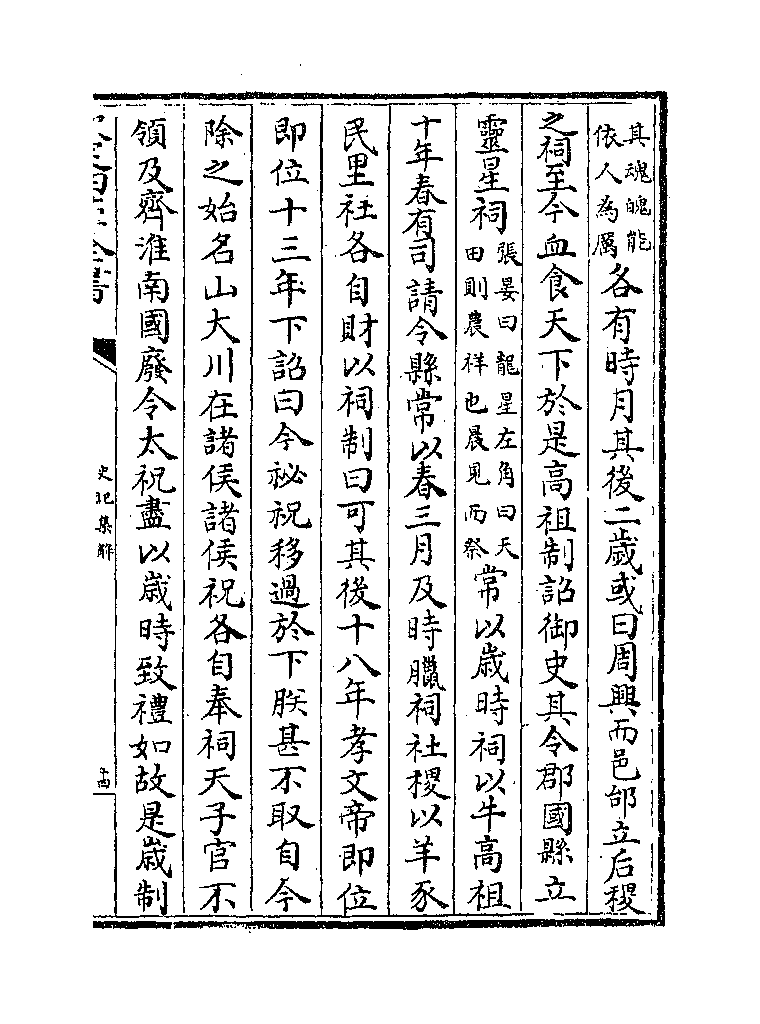 其魂魄能依人為厲各有時月其後二歲或曰周興而邑邰立后稷
之祠至今血食天下於是高祖制詔御史其令郡國縣立
靈星祠張晏曰龍星左角曰天田則農祥也晨見而祭常以歲時祠以牛高祖
十年春有司請令縣常以春三月及時臘祠社稷以羊豕
民里社各自財以祠制曰可其後十八年孝文帝即位
即位十三年下詔曰今祕祝移過於下朕甚不取自今
除之始名山大川在諸侯諸侯祝各自奉祠天子官不
領及齊淮南國廢令太祝盡以歲時致禮如故是歲制
史記集解
十四